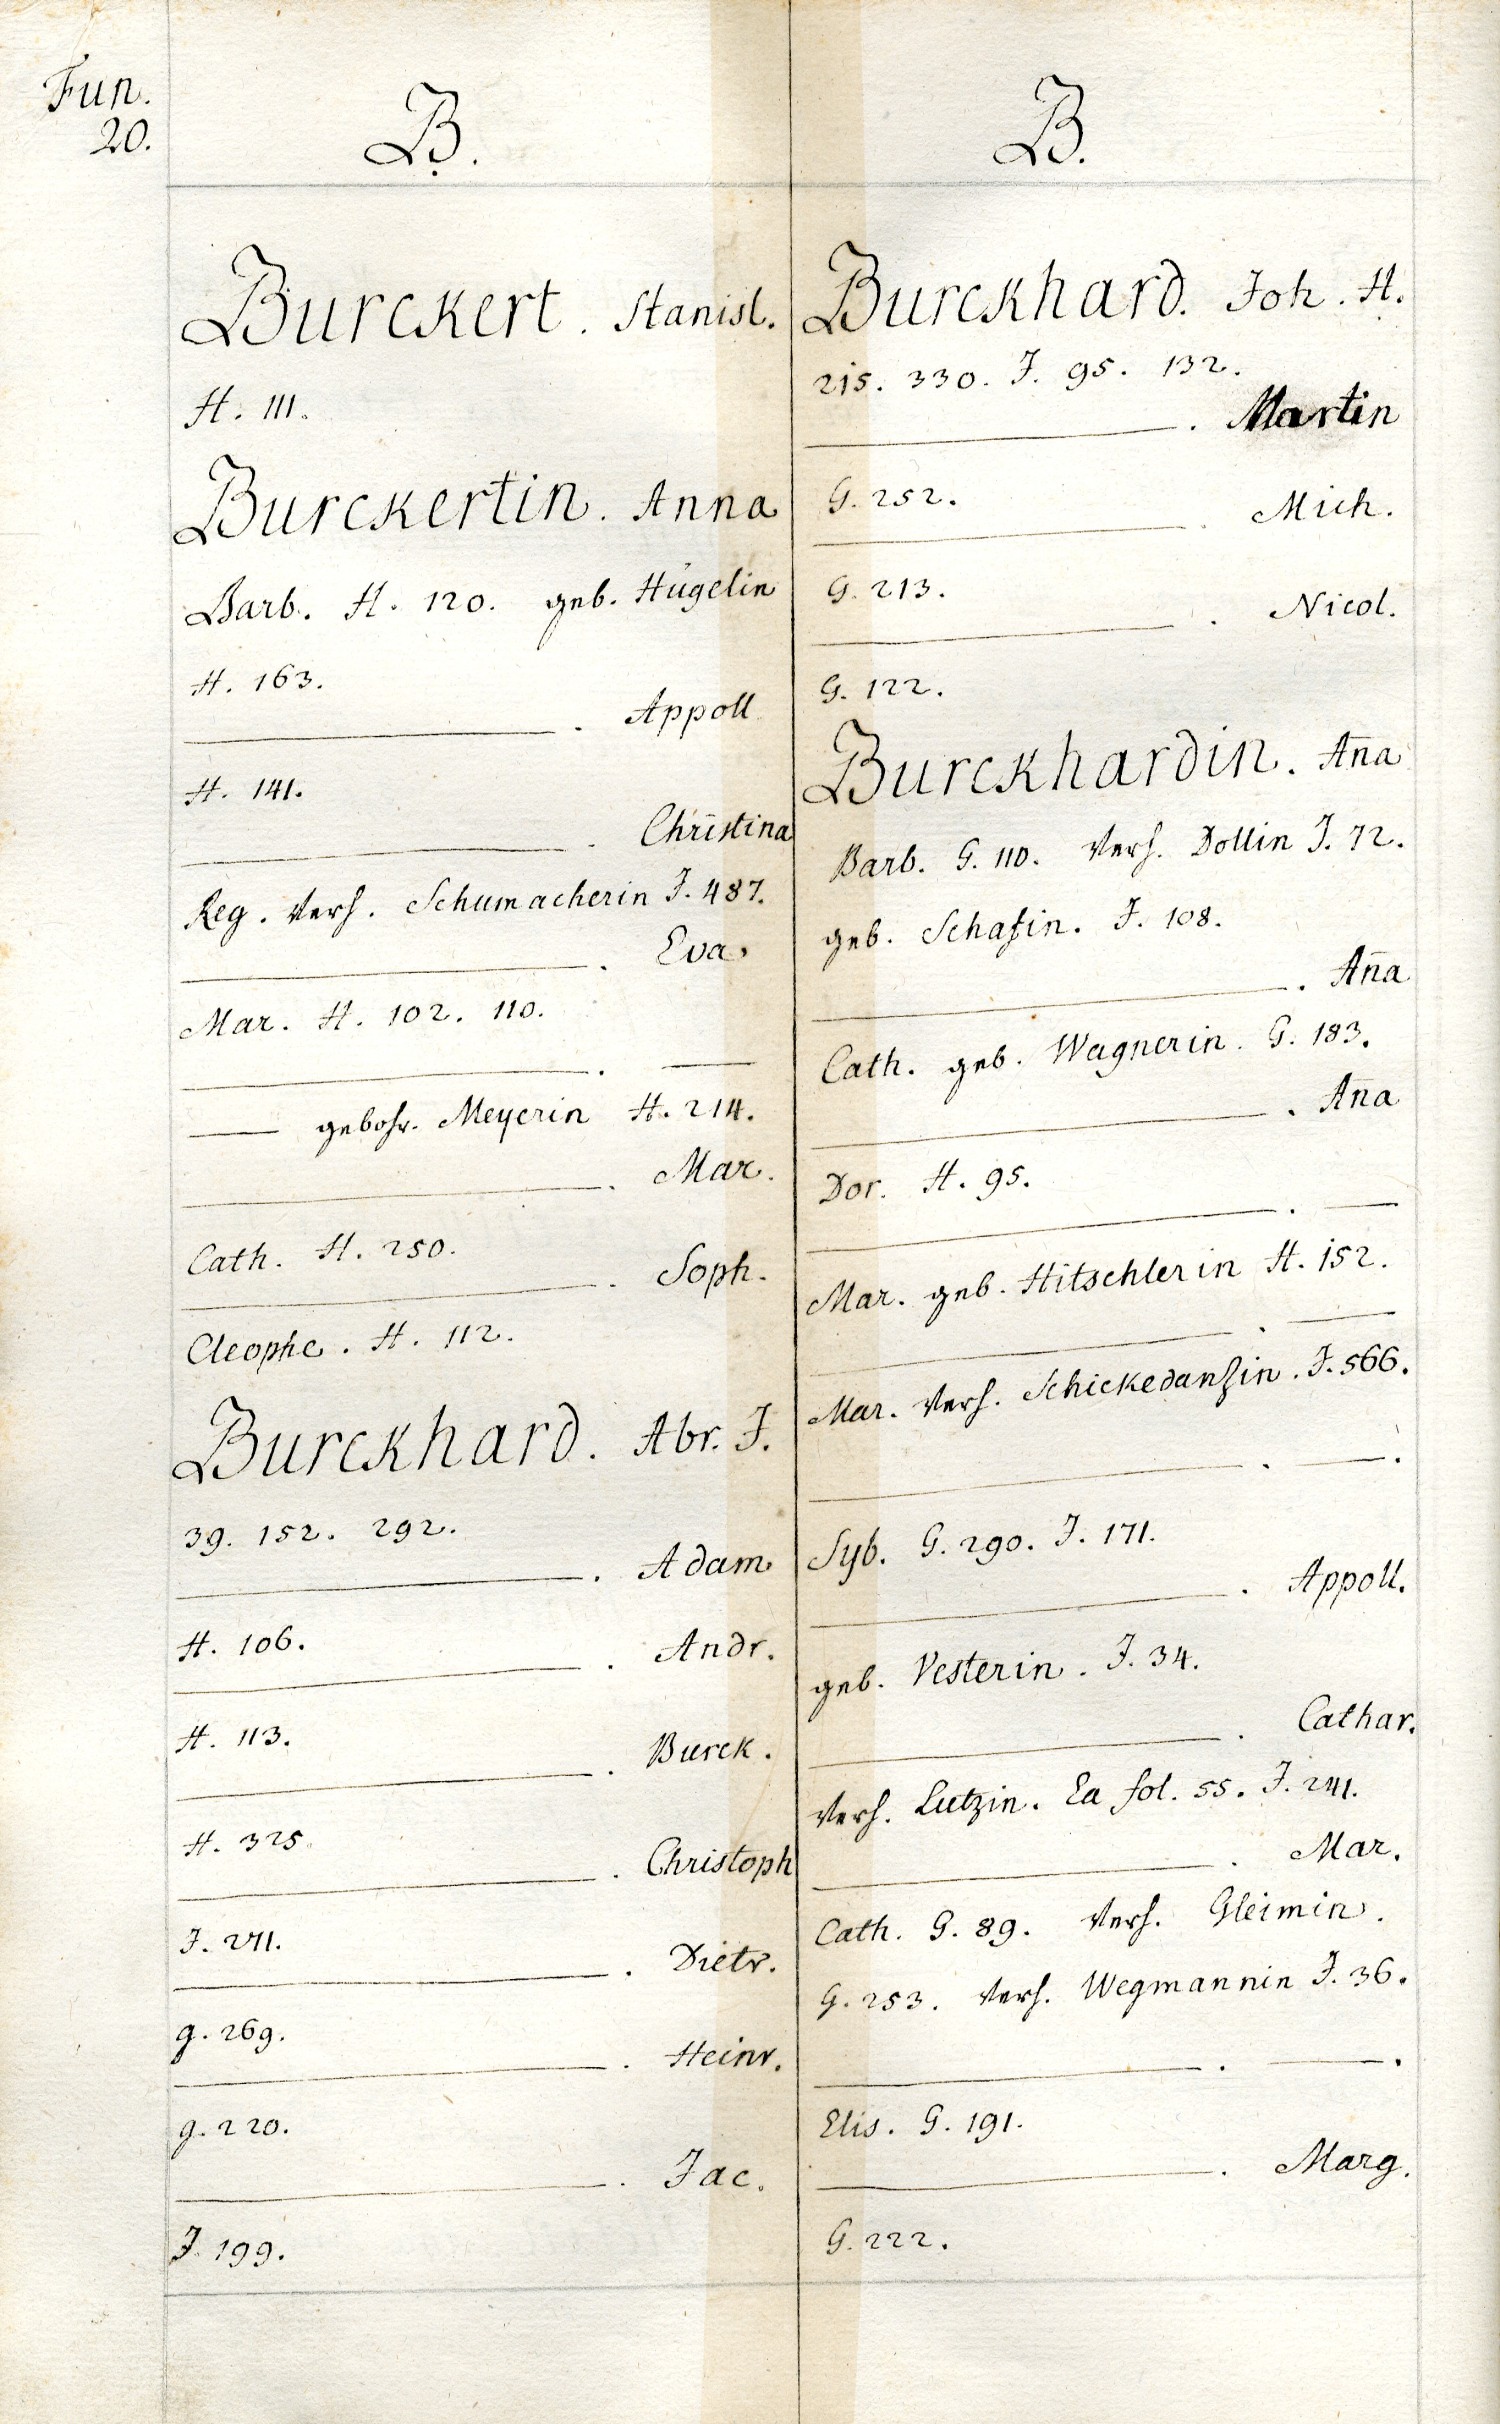 Fun.
20.
B.
Burckert. Stanisl.
H. 111.
Burckertin. Anna
Barb. H. 120. geb. Hügelin
H. 163.
——. Appoll
H. 141.
——. Christina
Reg. verh. Schumacherin J. 487.
——. Eva
Mar. H. 102. 110.
——. —
— gebohr. Meyerin H. 214.
——. Mar.
Cath. H. 250.
——. Soph.
Cleophe. H. 112.
Burckhard. Abr. J.
39. 152. 292.
——. Adam
H. 106.
——. Andr.
H. 113.
——. Burck.
H. 325.
——. Christoph
J. 271.
——. Dietr.
g. 269.
——. Heinr.
g. 220.
——. Jac.
J. 199.
B.
Burckhard. Joh. H.
215. 330. J. 95. 132.
——. Martin
G. 252.
——. Mich.
G. 213.
——. Nicol.
G. 122.
Burckhardin. Aña
Barb. G. 110. verh. Dollin J. 72.
geb. Schafin. J. 108.
——. Aña
Cath. geb. Wagnerin. G. 183.
——. Aña
Dor. H. 95.
——. —
Mar. geb. Hitschlerin H. 152.
——. —
Mar. verh. Schickedanzin. J. 566.
——. —.
Syb. G. 290. J. 171.
——. Appoll.
geb. Vesterin. J. 34.
——. Cathar.
verh. Lutzin. Ea fol. 55. J. 241.
——. Mar.
Cath. G. 89. verh. Gleimin.
G. 253. verh. Wegmannin J. 36.
——. —.
Elis. G. 191.
——. Marg.
G. 222.